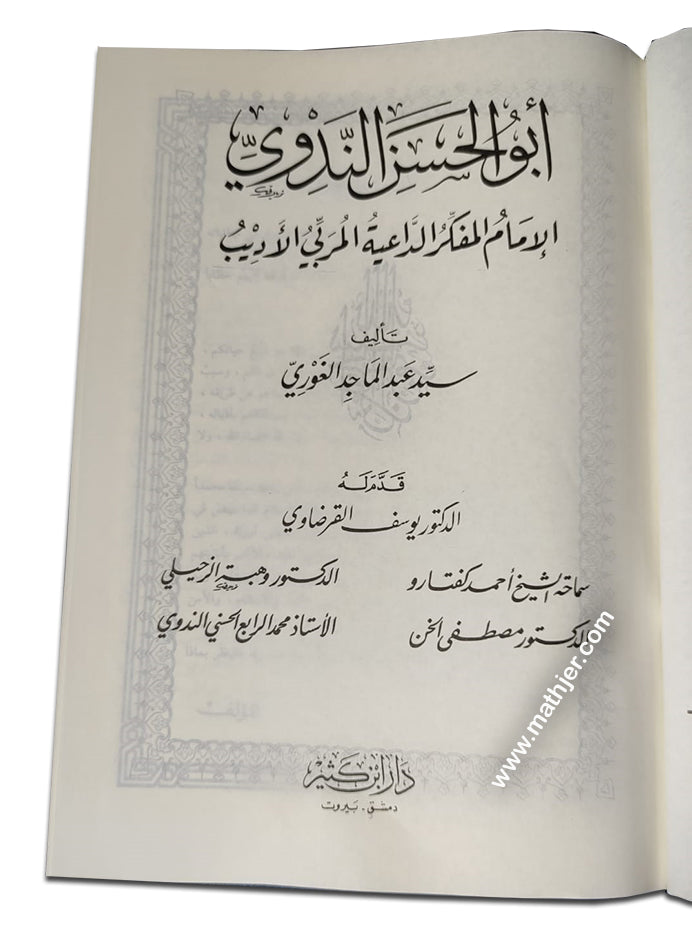 أبُو الحَسَن النَّدْويّ
الإمَامُ المُفكِّرُ الدَّاعيَةُ المُرَبِّي الأَدِيْبُ
تأليف
سيِّد عَبد المَاجِد الغَوْريّ
قَدَّمَ لَهُ
الدكتور يوسف القرضاوي
سماحة الشيخ أحمد كفتارو
الدكتور وهبة الزحيلي
الدكتور مصطفى الخن
الأستاذ محمد الرابع الحسني الندوي
دَار ابْن كَثير
دمشق - بيروت
www.mathjer.com